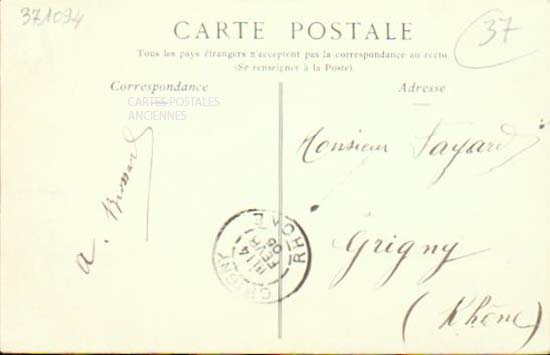 371094
37
CARTE POSTALE
Tous les pays étrangers n'acceptent pas la correspondance au recto
(Se renseigner à la Poste)
Correspondance
Adresse
CARTES POSTALES
ANCIENNES
Monsieur Fayard
a. Brossard
GRIGNY
14
FEVR
08
RHONE
Grigny
(Rhône)